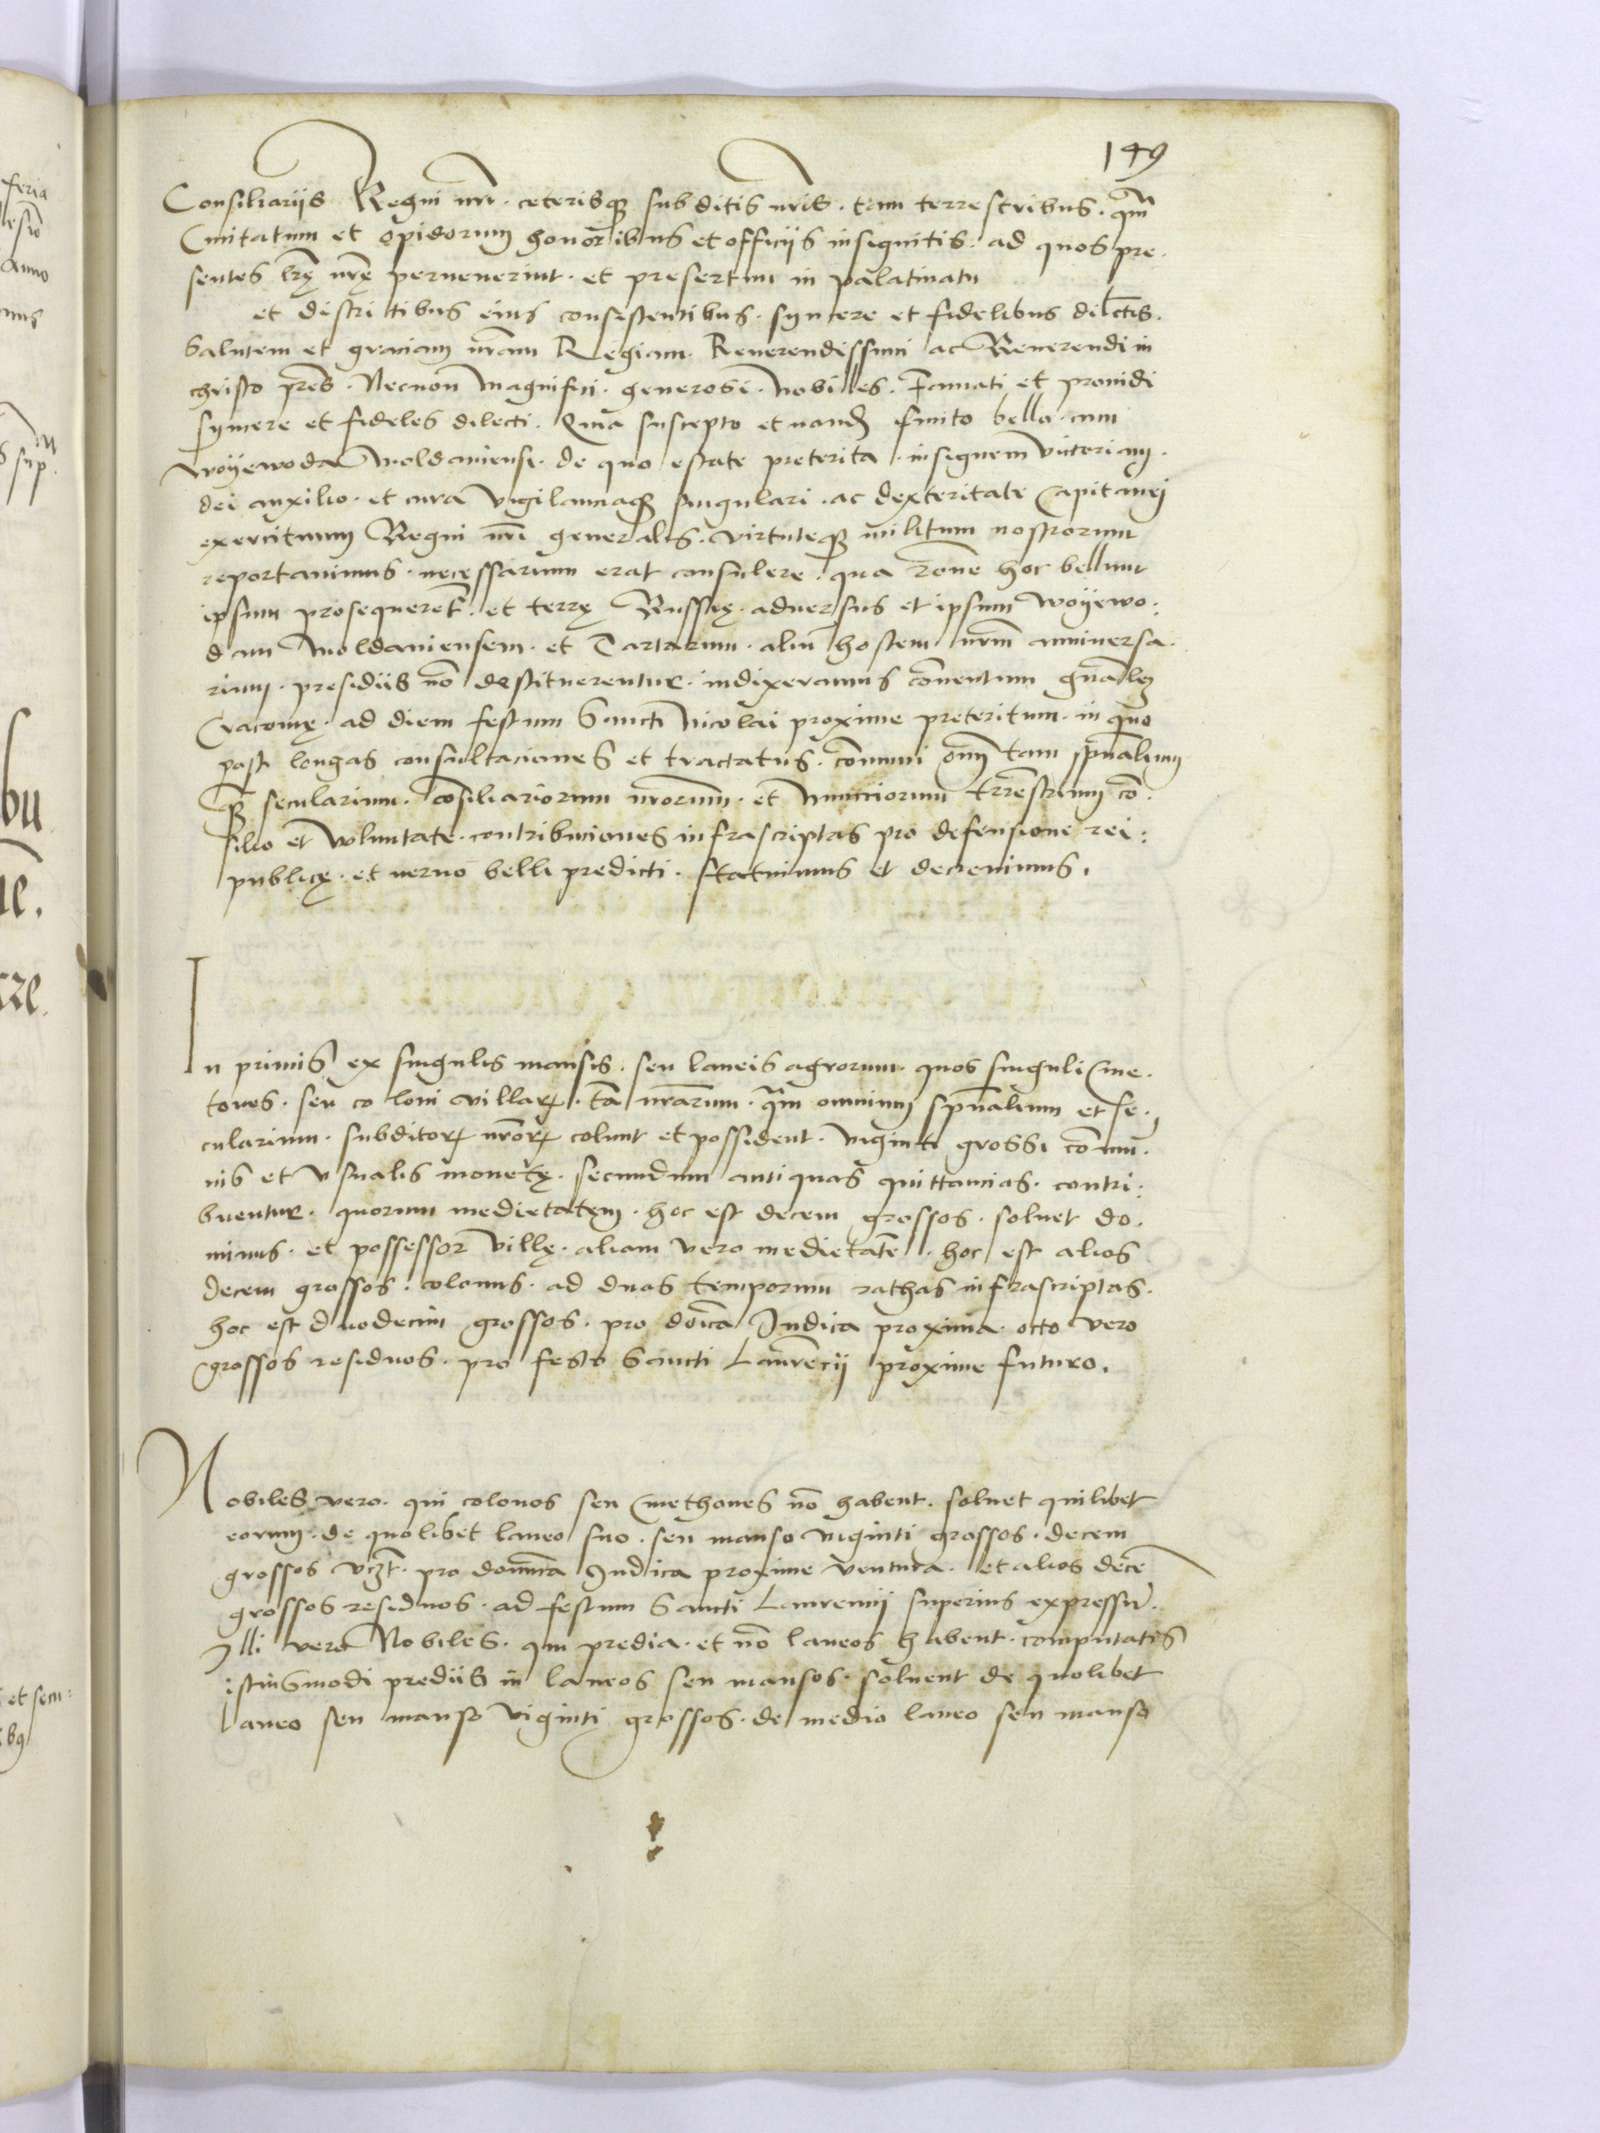 149
Consiliariis Regni nrĩ · ceterisq subditis nrĩs · tam terrestribus · qm̃
Civitatum et opidorum honoribus et officiis insignitis · ad quos pre·
sentes lrẽ nrẽ pervenerint · et presertim in palatinatu
et districtibus eius consistentibus · syncere et fidelibus dilctĩs ·
Salutem et graciam nrãm Regiam · Reverendissimi ac Reverendi in
christo prẽs · Necnon Magnifici · generosi · Nobiles · Famati et providi
syncere et fideles dilecti · Quia suscepto et finito bello · cum
woyewoda Moldaviensi · de quo estate preterita · insignem victoriam ·
dei auxilio · et cura vigilanciaq singulari · ac dexteritate Capitanei
exercituum Regni nrĩ generalis · virtuteq militum nostrorum
reportavimus · necessarium erat consulere · qua rõne hoc bellum
ipsum prosequeret̃ · et terrę Russię · adversus et ipsum woyewo:
dam Moldaviensem · et Tartarum · aliũ hostem nrm̃ anniversa·
rium · presidiis nõ destituerentur · indixeramus cõventum gnãlem
Cracovię · ad diem festum Sancti Nicolai proxime preteritum · in quo
post longas consultaciones et tractatus · cõmuni om̃ tam spũalium
q̃ secularium · cõsiliariorum nrorum · et Nuncciorum trrẽstrium cõ·
silio et voluntate · contribuciones infrascriptas pro defensione rei:
publicę · et nervo belli predicti · statuimus et decrevimus ·
In primis ex singulis mansis · seu laneis agrorum · quos singuli Cme·
tones · seu coloni villarꝝ · tã nrãrum · q̃m omnium spũalium et se·
cularium · subditorꝝ nrõrꝝ colunt et possident · viginti grossi cõmu·
nis et usualis monetę · secundum antiquas quittancias · contri:
buentur · quorum medietatem · hoc est decem grossos · solvet do·
minus · et possessor villę · aliam vero medietatẽ · hoc est alios
decem grossos · colonus · ad duas temporum rathas infrascriptas ·
hoc est duodecim grossos · pro dõica Iudica proxima · octo vero
grossos residuos · pro festo Sancti Laurẽcii proxime futuro ·
Nobiles vero · qui colonos seu Cmethones nõ habent · solvet quilibet
eorum · de quolibet laneo suo · seu manso viginti grossos · decem
grossos vczt̃ · pro domĩca Iudica proxime ventura · et alios decẽ
grossos residuos · ad festum Sancti Laurencii superius expressũ ·
Illi vero Nobiles · qui predia · et nõ laneos habent · computatis
istiusmodi prediis in laneos seu mansos · solvent de quolibet
laneo seu manso viginti grossos · de medio laneo seu manso